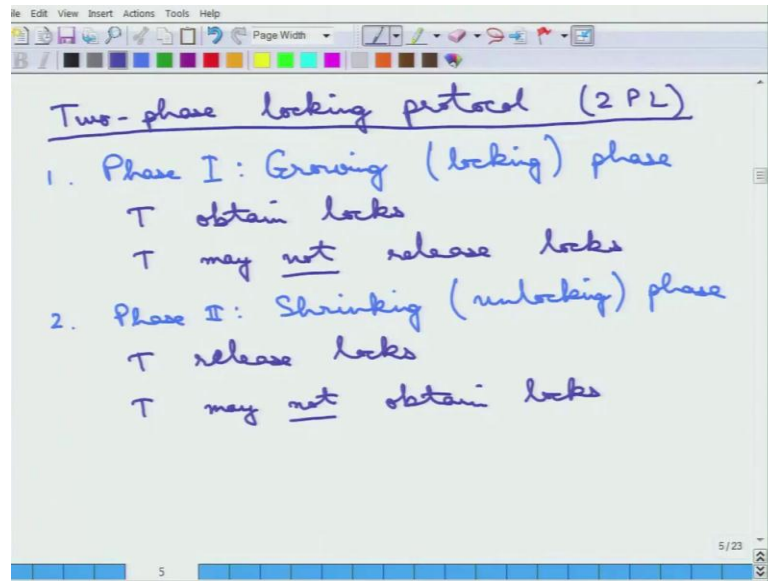 le Edit View Insert Actions Tools Help
Page Width
B I
Two-phase locking protocol (2PL)
1. Phase I: Growing (locking) phase
T obtain locks
T may not release locks
2. Phase II: Shrinking (unlocking) phase
T release locks
T may not obtain locks
5/23
5